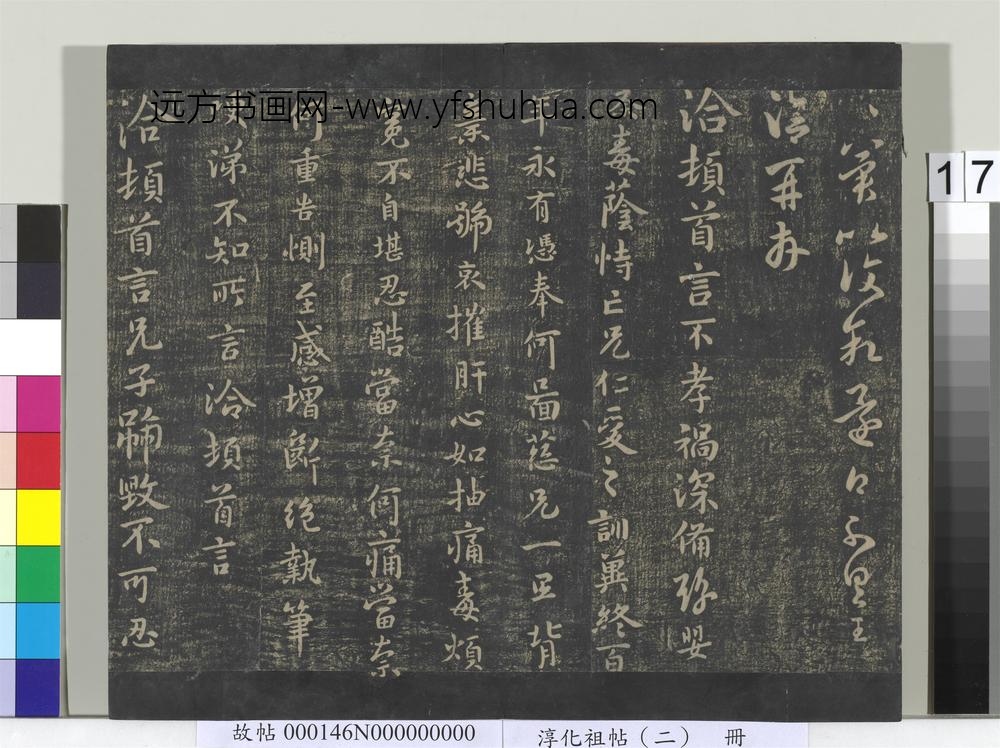 远方书画网-www.yfshuhua.com
不具王
洽再拜
洽頓首言不孝禍深備豫嬰
毒蔭恃亡兄仁愛之訓冀終百
年永有憑奉何啚慈兄一旦背
棄悲號哀摧肝心如抽痛毒煩
冤不自堪忍酷當奈何痛當奈
何重告惻至感增斷絕執筆
涕不知所言洽頓首言
洽頓首言兄子號毀不可忍
17
故帖 000146N000000000
淳化祖帖（二） 冊